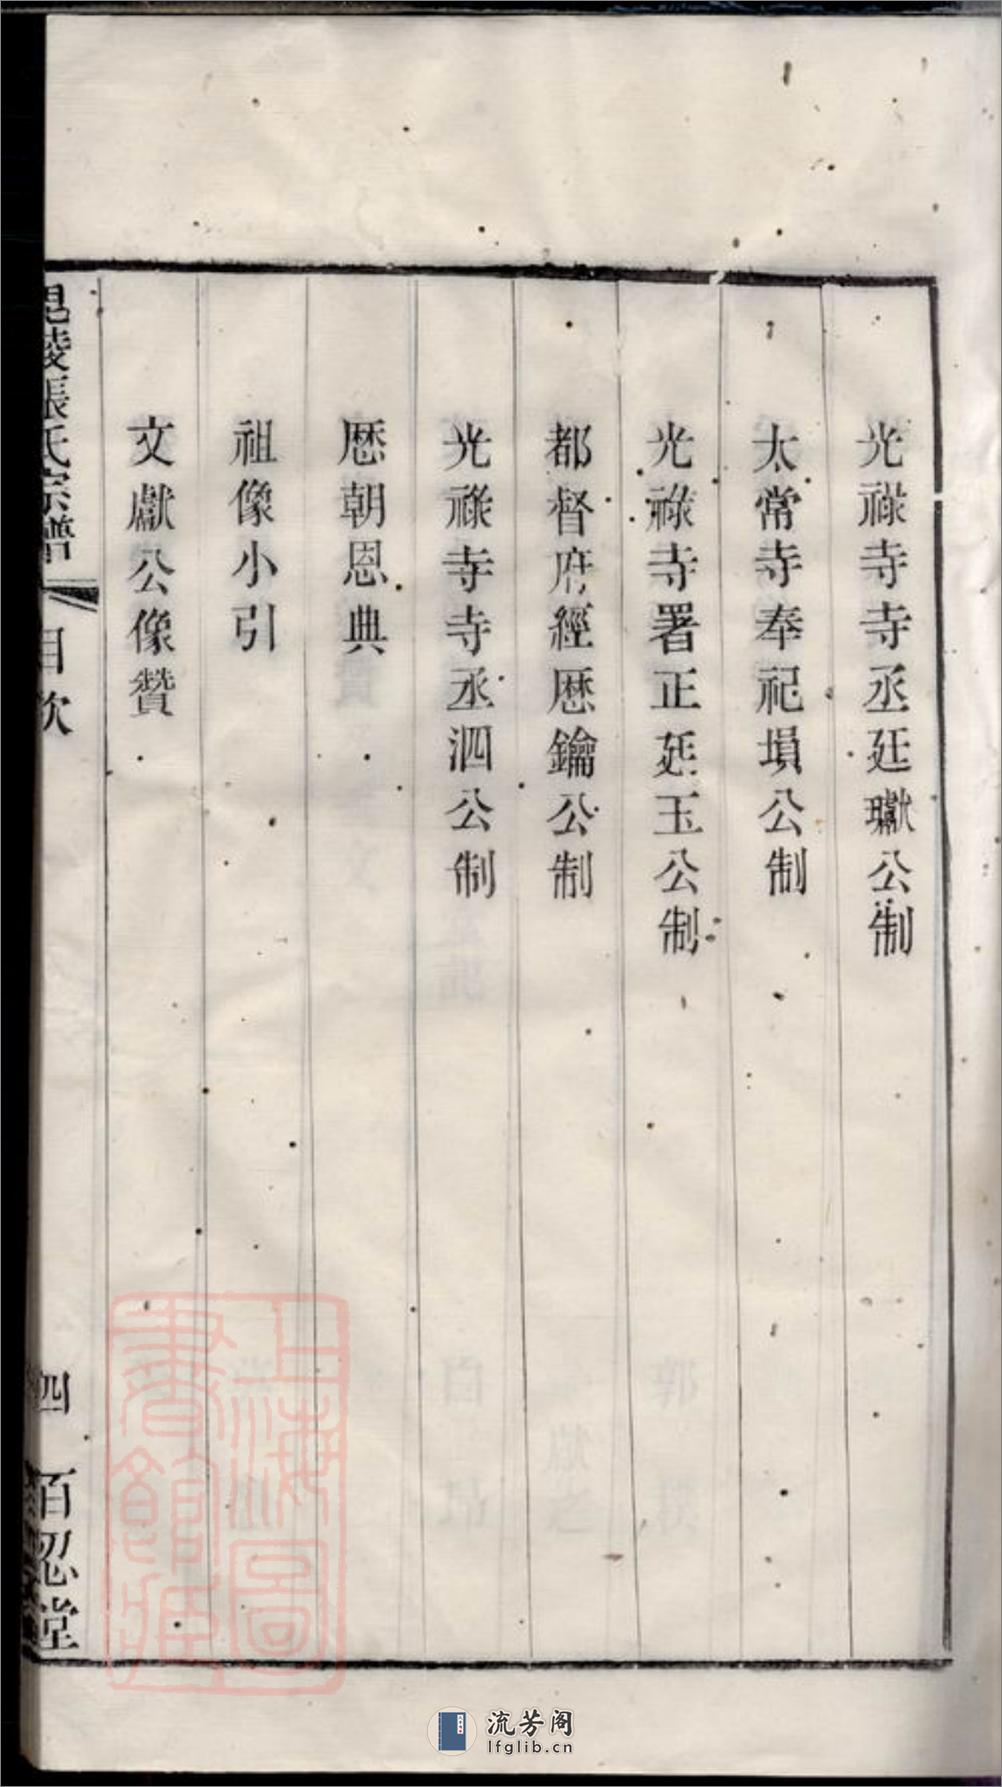 光祿寺寺丞廷瓛公制
太常寺奉祀塤公制
光祿寺署正廷玉公制
都督府經厯鑰公制
光祿寺寺丞泗公制
厯朝恩典
祖像小引
文獻公像贊
毘陵張氏宗譜
目次
四
百忍堂
上海圖書館藏
流芳阁
lfglib.cn